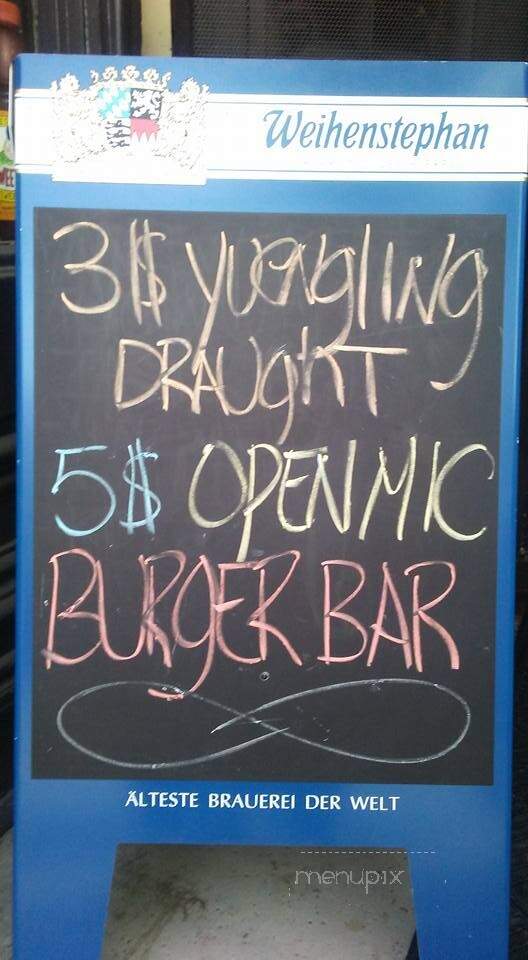 Weihenstephan
3$ YUENglINg
DRAUghT
5$ OPEN MIC
BURgER BAR
ÄLTESTE BRAUEREI DER WELT
menupix